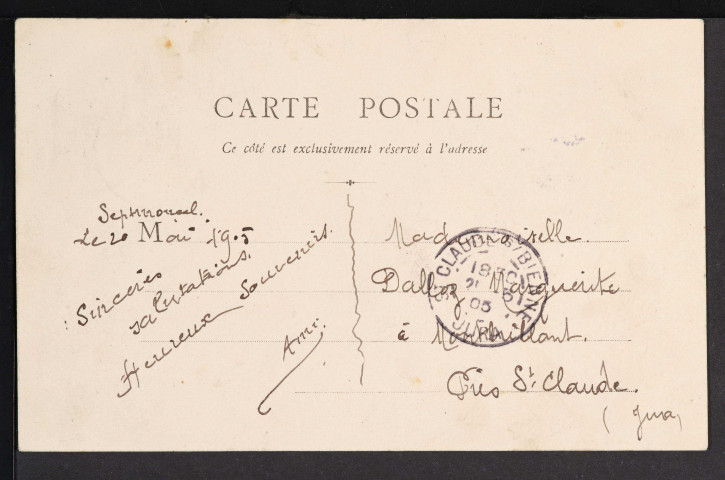 CARTE POSTALE
Ce côté est exclusivement réservé à l'adresse
Septmoncel.
Le 20 Mai 1905
Sincères
salutations.
Heureux Souvenirs.
Mademoiselle.
Marguerite
à Montbrillant.
Près St Claude.
(Jura)
ST CLAUDE S/BIENNE
JURA